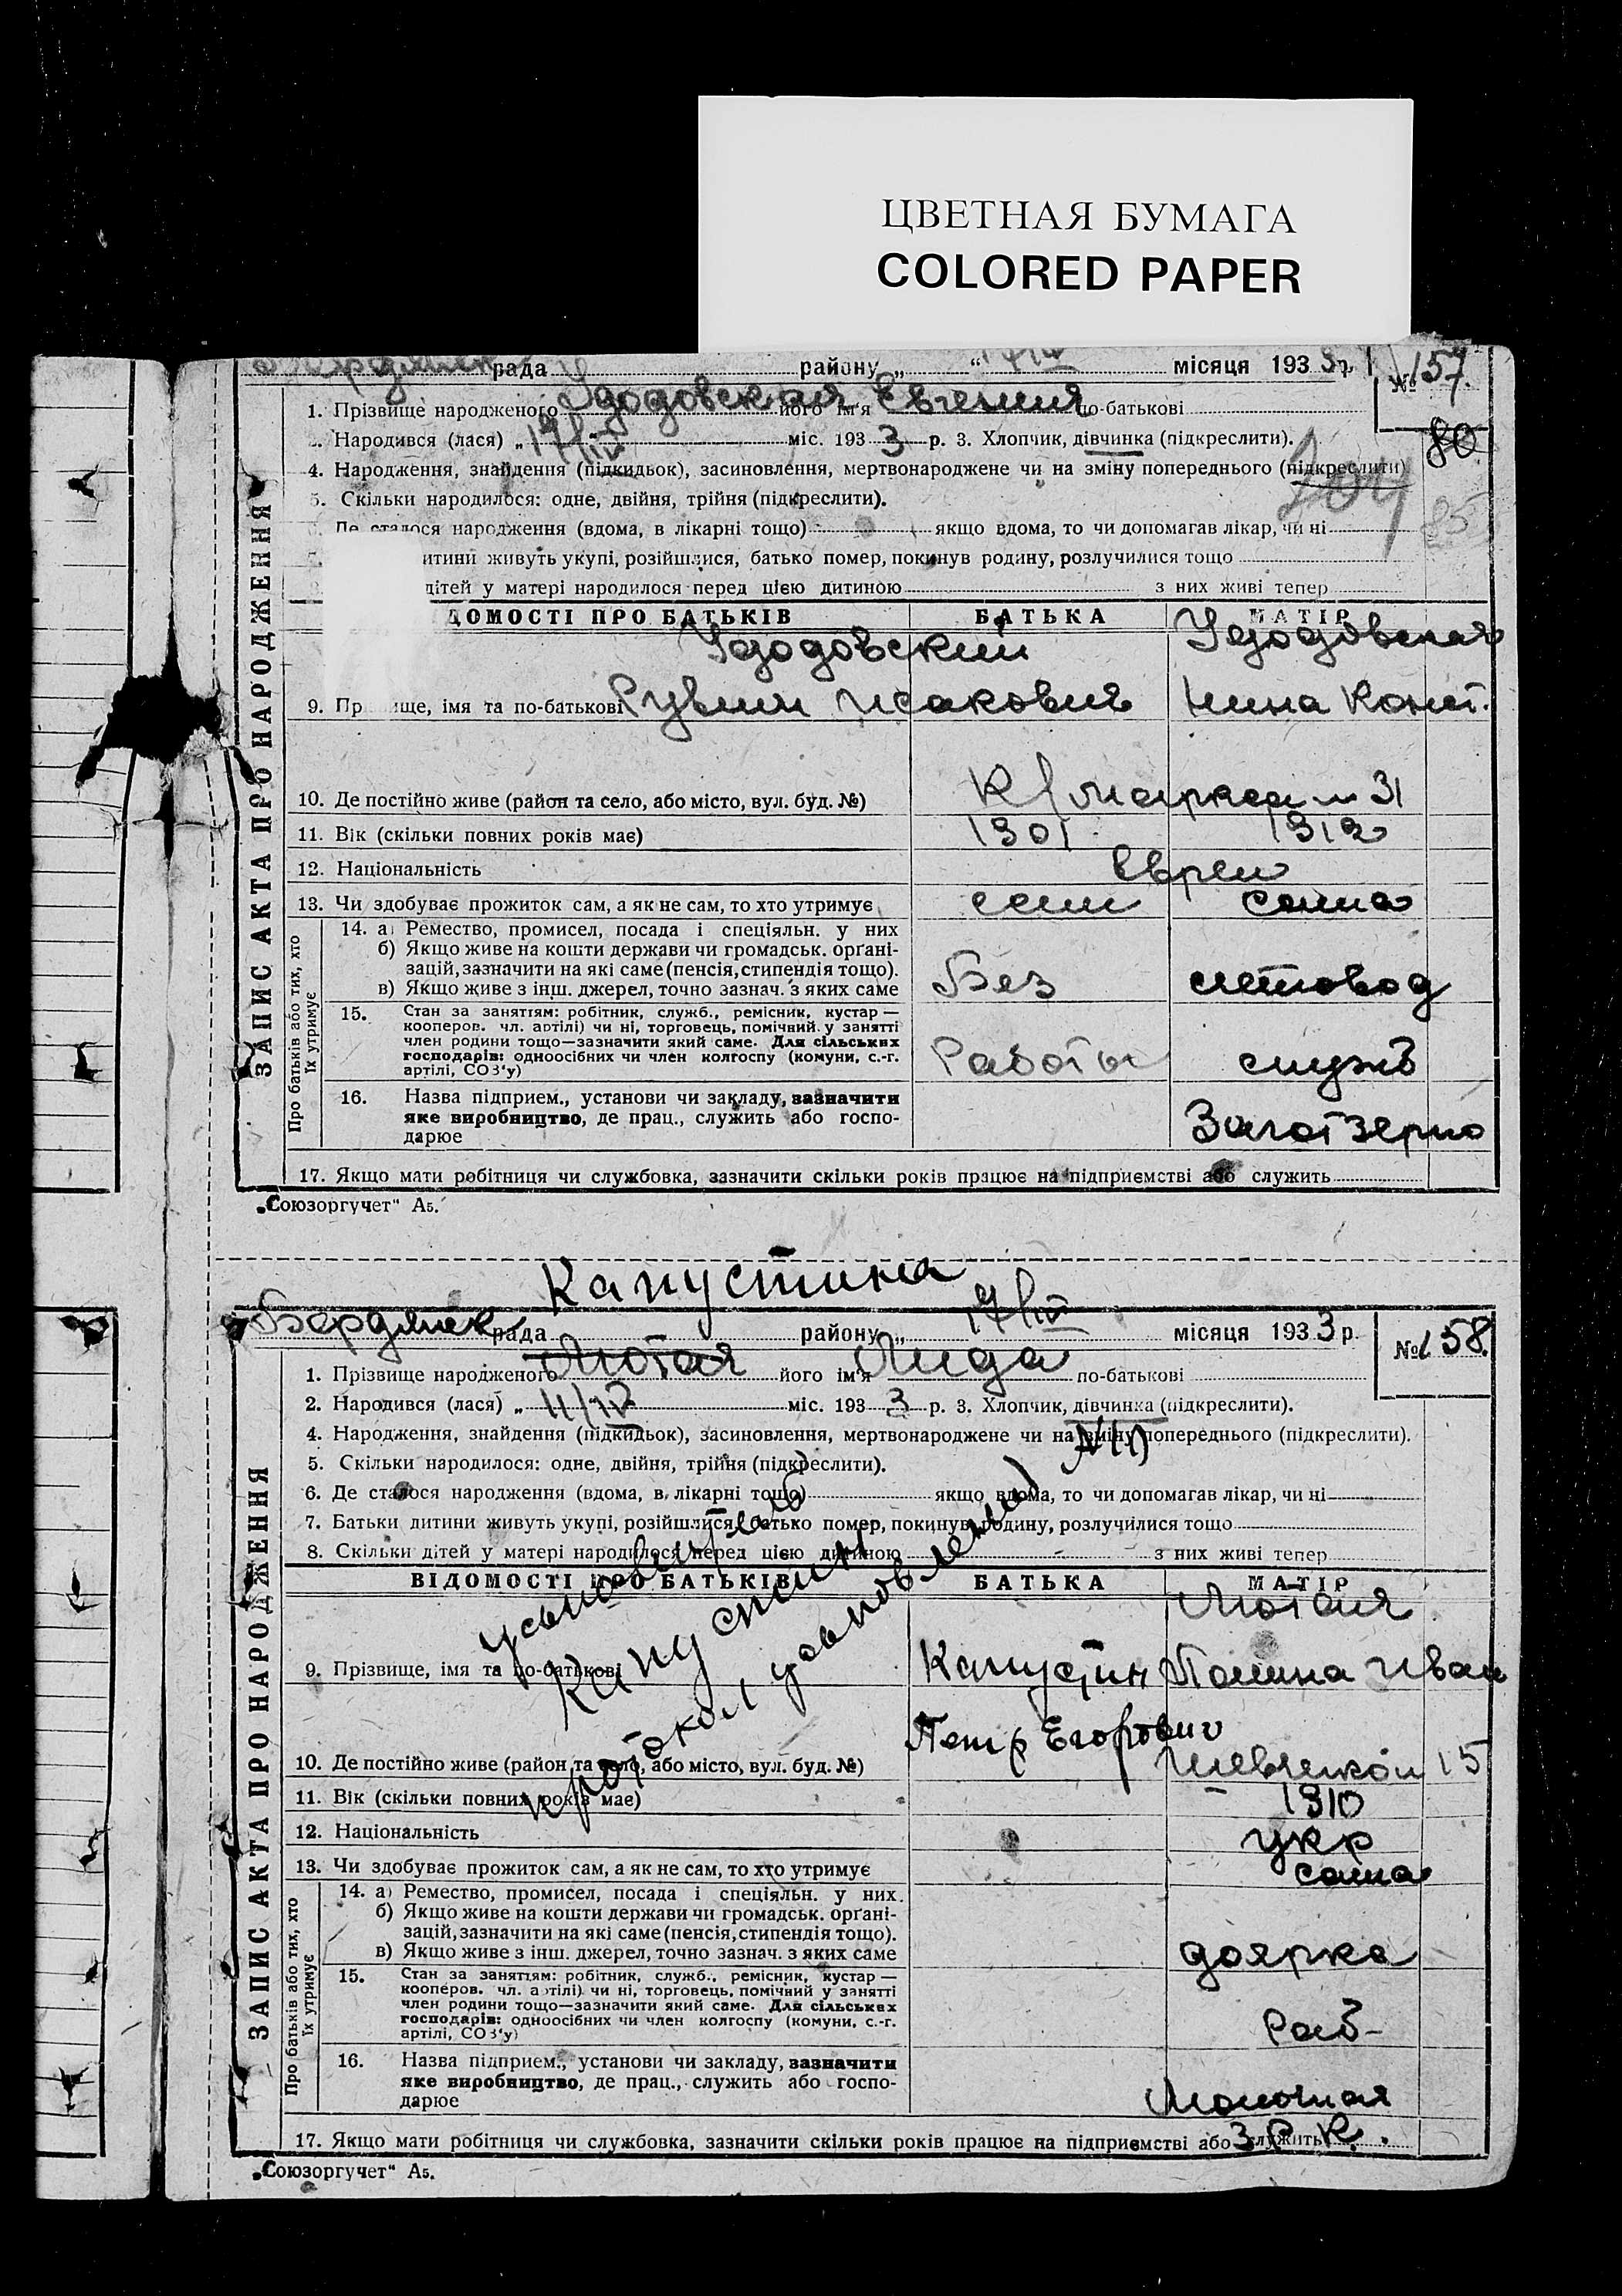 ЦВЕТНАЯ БУМАГА
COLORED PAPER
рада району „ “ місяця 193 3 р. № 157.
1. Прізвище народженого Удодовская його ім'я Евгения по-батькові
2. Народився (лася) „ 17/IV міс. 193 3 р. 3. Хлопчик, дівчинка (підкреслити).
80
4. Народження, знайдення (підкидьок), засиновлення, мертвонароджене чи на зміну попереднього (підкреслити)
5. Скільки народилося: одне, двійня, трійня (підкреслити).
Де сталося народження (вдома, в лікарні тощо) якщо вдома, то чи допомагав лікар, чи ні
итини живуть укупі, розійшлися, батько помер, покинув родину, розлучилися тощо
дітей у матері народилося перед цією дитиною з них живі тепер
ДОМОСТІ ПРО БАТЬКІВ БАТЬКА МАТІР
Удодовский Удодовская
9. Прізвище, імя та по-батькові Рувин Исакович Нина Конст.
10. Де постійно живе (район та село, або місто, вул. буд. №) К/Маркса 31
11. Вік (скільки повних років має) 1901 1912
12. Національність Евреи
13. Чи здобуває прожиток сам, а як не сам, то хто утримує сам сама
14. а) Ремество, промисел, посада і спеціяльн. у них
б) Якщо живе на кошти держави чи громадськ. орґані-
зацій, зазначити на які саме (пенсія, стипендія тощо).
в) Якщо живе з інш. джерел, точно зазнач. з яких саме Без счетовод
15. Стан за заняттям: робітник, служб., ремісник, кустар —
кооперов. чл. артілі) чи ні, торговець, помічний у занятті
член родини тощо—зазначити який саме. Для сільських
господарів: одноосібних чи член колгоспу (комуни, с.-г.
артілі, СОЗ'у) Работы служб
16. Назва підприєм., установи чи закладу, зазначити
яке виробництво, де прац., служить або госпо-
дарює Заготзерно
17. Якщо мати робітниця чи службовка, зазначити скільки років працює на підприємстві або служить
ЗАПИС АКТА ПРО НАРОДЖЕННЯ
Про батьків або тих, хто їх утримує
„Союзоргучет“ А5.
Капустина
Бердянск рада району „ 17/IV місяця 193 3 р. № 158.
1. Прізвище народженого Лютая його ім'я Лида по-батькові
2. Народився (лася) „ 11/IV міс. 193 3 р. 3. Хлопчик, дівчинка (підкреслити).
4. Народження, знайдення (підкидьок), засиновлення, мертвонароджене чи на зміну попереднього (підкреслити).
5. Скільки народилося: одне, двійня, трійня (підкреслити).
6. Де сталося народження (вдома, в лікарні тощо) якщо вдома, то чи допомагав лікар, чи ні
7. Батьки дитини живуть укупі, розійшлися, батько помер, покинув родину, розлучилися тощо
8. Скільки дітей у матері народилося перед цією дитиною з них живі тепер
ВІДОМОСТІ ПРО БАТЬКІВ БАТЬКА МАТІР
Лютая
9. Прізвище, імя та по-батькові Капустин Полина Иван
Петр Егорович
10. Де постійно живе (район та село, або місто, вул. буд. №) Шевченко 15
11. Вік (скільки повних років має) 1910
12. Національність укр
13. Чи здобуває прожиток сам, а як не сам, то хто утримує сама
14. а) Ремество, промисел, посада і спеціяльн. у них.
б) Якщо живе на кошти держави чи громадськ. орґані-
зацій, зазначити на які саме (пенсія, стипендія тощо).
в) Якщо живе з інш. джерел, точно зазнач. з яких саме доярка
15. Стан за заняттям: робітник, служб., ремісник, кустар —
кооперов. чл. артілі) чи ні, торговець, помічний у занятті
член родини тощо—зазначити який саме. Для сільських
господарів: одноосібних чи член колгоспу (комуни, с.-г.
артілі, СОЗ'у) Раб-
16. Назва підприєм., установи чи закладу, зазначити
яке виробництво, де прац., служить або госпо-
дарює Молочная
17. Якщо мати робітниця чи службовка, зазначити скільки років працює на підприємстві або служить З Р К.
Капустин
протокол усыновления
ЗАПИС АКТА ПРО НАРОДЖЕННЯ
Про батьків або тих, хто їх утримує
„Союзоргучет“ А5.